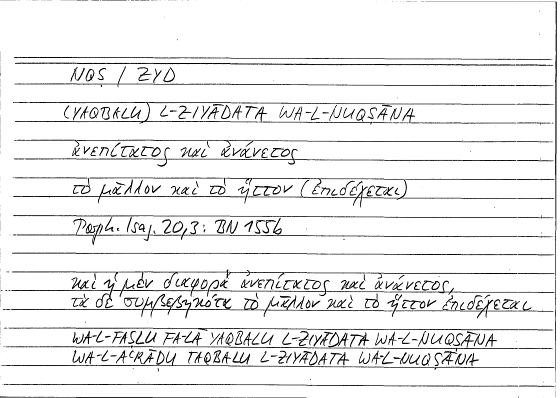 NQṢ / ZYD
(YAQBALU) L-ZIYĀDATA WA-L-NUQṢĀNA
ἀνεπίτατος καὶ ἀνάνετος
τὸ μᾶλλον καὶ τὸ ἧττον (ἐπιδέχεται)
Porph. Isag. 20,3: BN 155b
καὶ ἡ μὲν διαφορὰ ἀνεπίτατος καὶ ἀνάνετος,
τὰ δὲ συμβεβηκότα τὸ μᾶλλον καὶ τὸ ἧττον ἐπιδέχεται
WA-L-FAṢLU FA-LĀ YAQBALU L-ZIYĀDATA WA-L-NUQṢĀNA
WA-L-AʿRĀḌU TAQBALU L-ZIYĀDATA WA-L-NUQṢĀNA